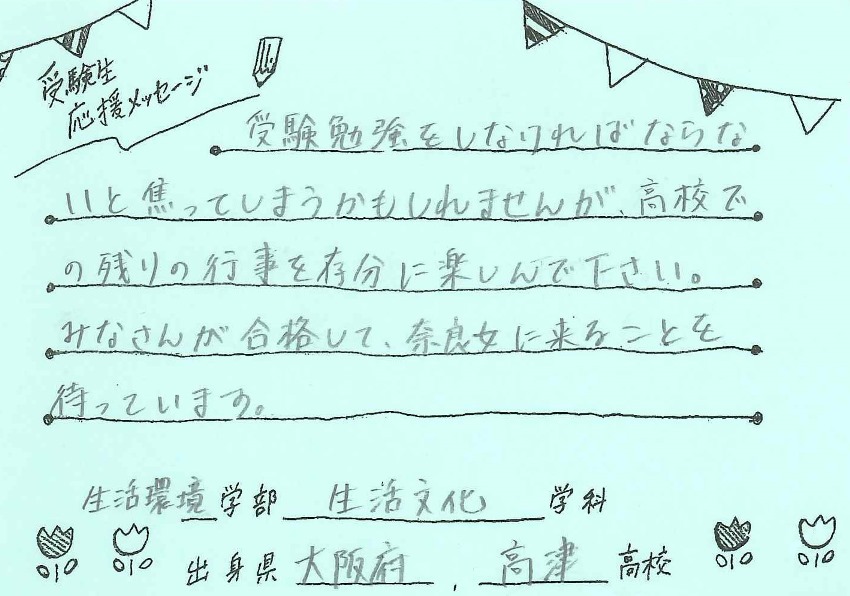 受験生
応援メッセージ
受験勉強をしなければならな
いと焦ってしまうかもしれませんが、高校で
の残りの行事を存分に楽しんで下さい。
みなさんが合格して、奈良女に来ることを
待っています。
生活環境学部 生活文化 学科
出身県 大阪府 , 高津 高校